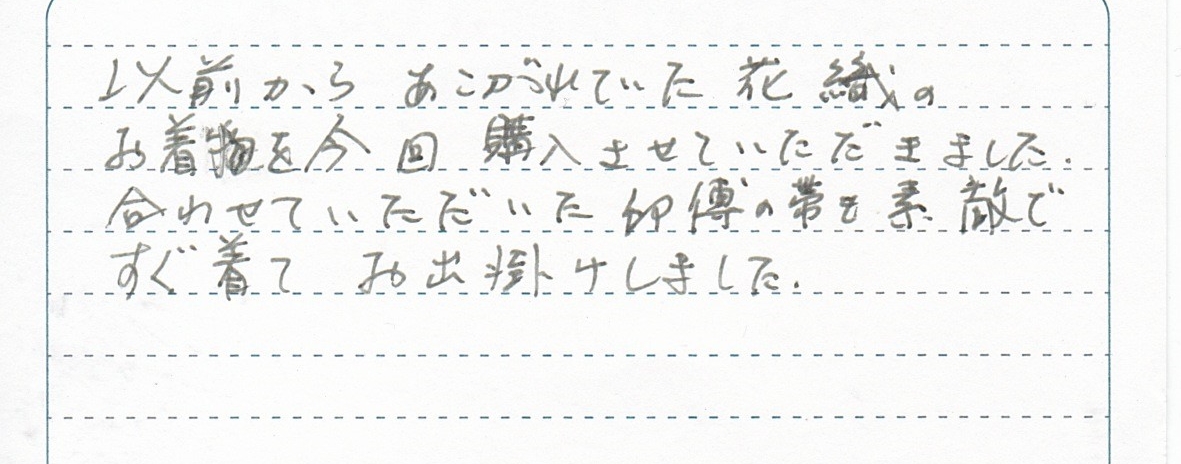 以前から あこがれていた 花織の
お着物を今回 購入させていただきました.
合わせていただいた の帯も素敵で
すぐ着て お出掛けしました.